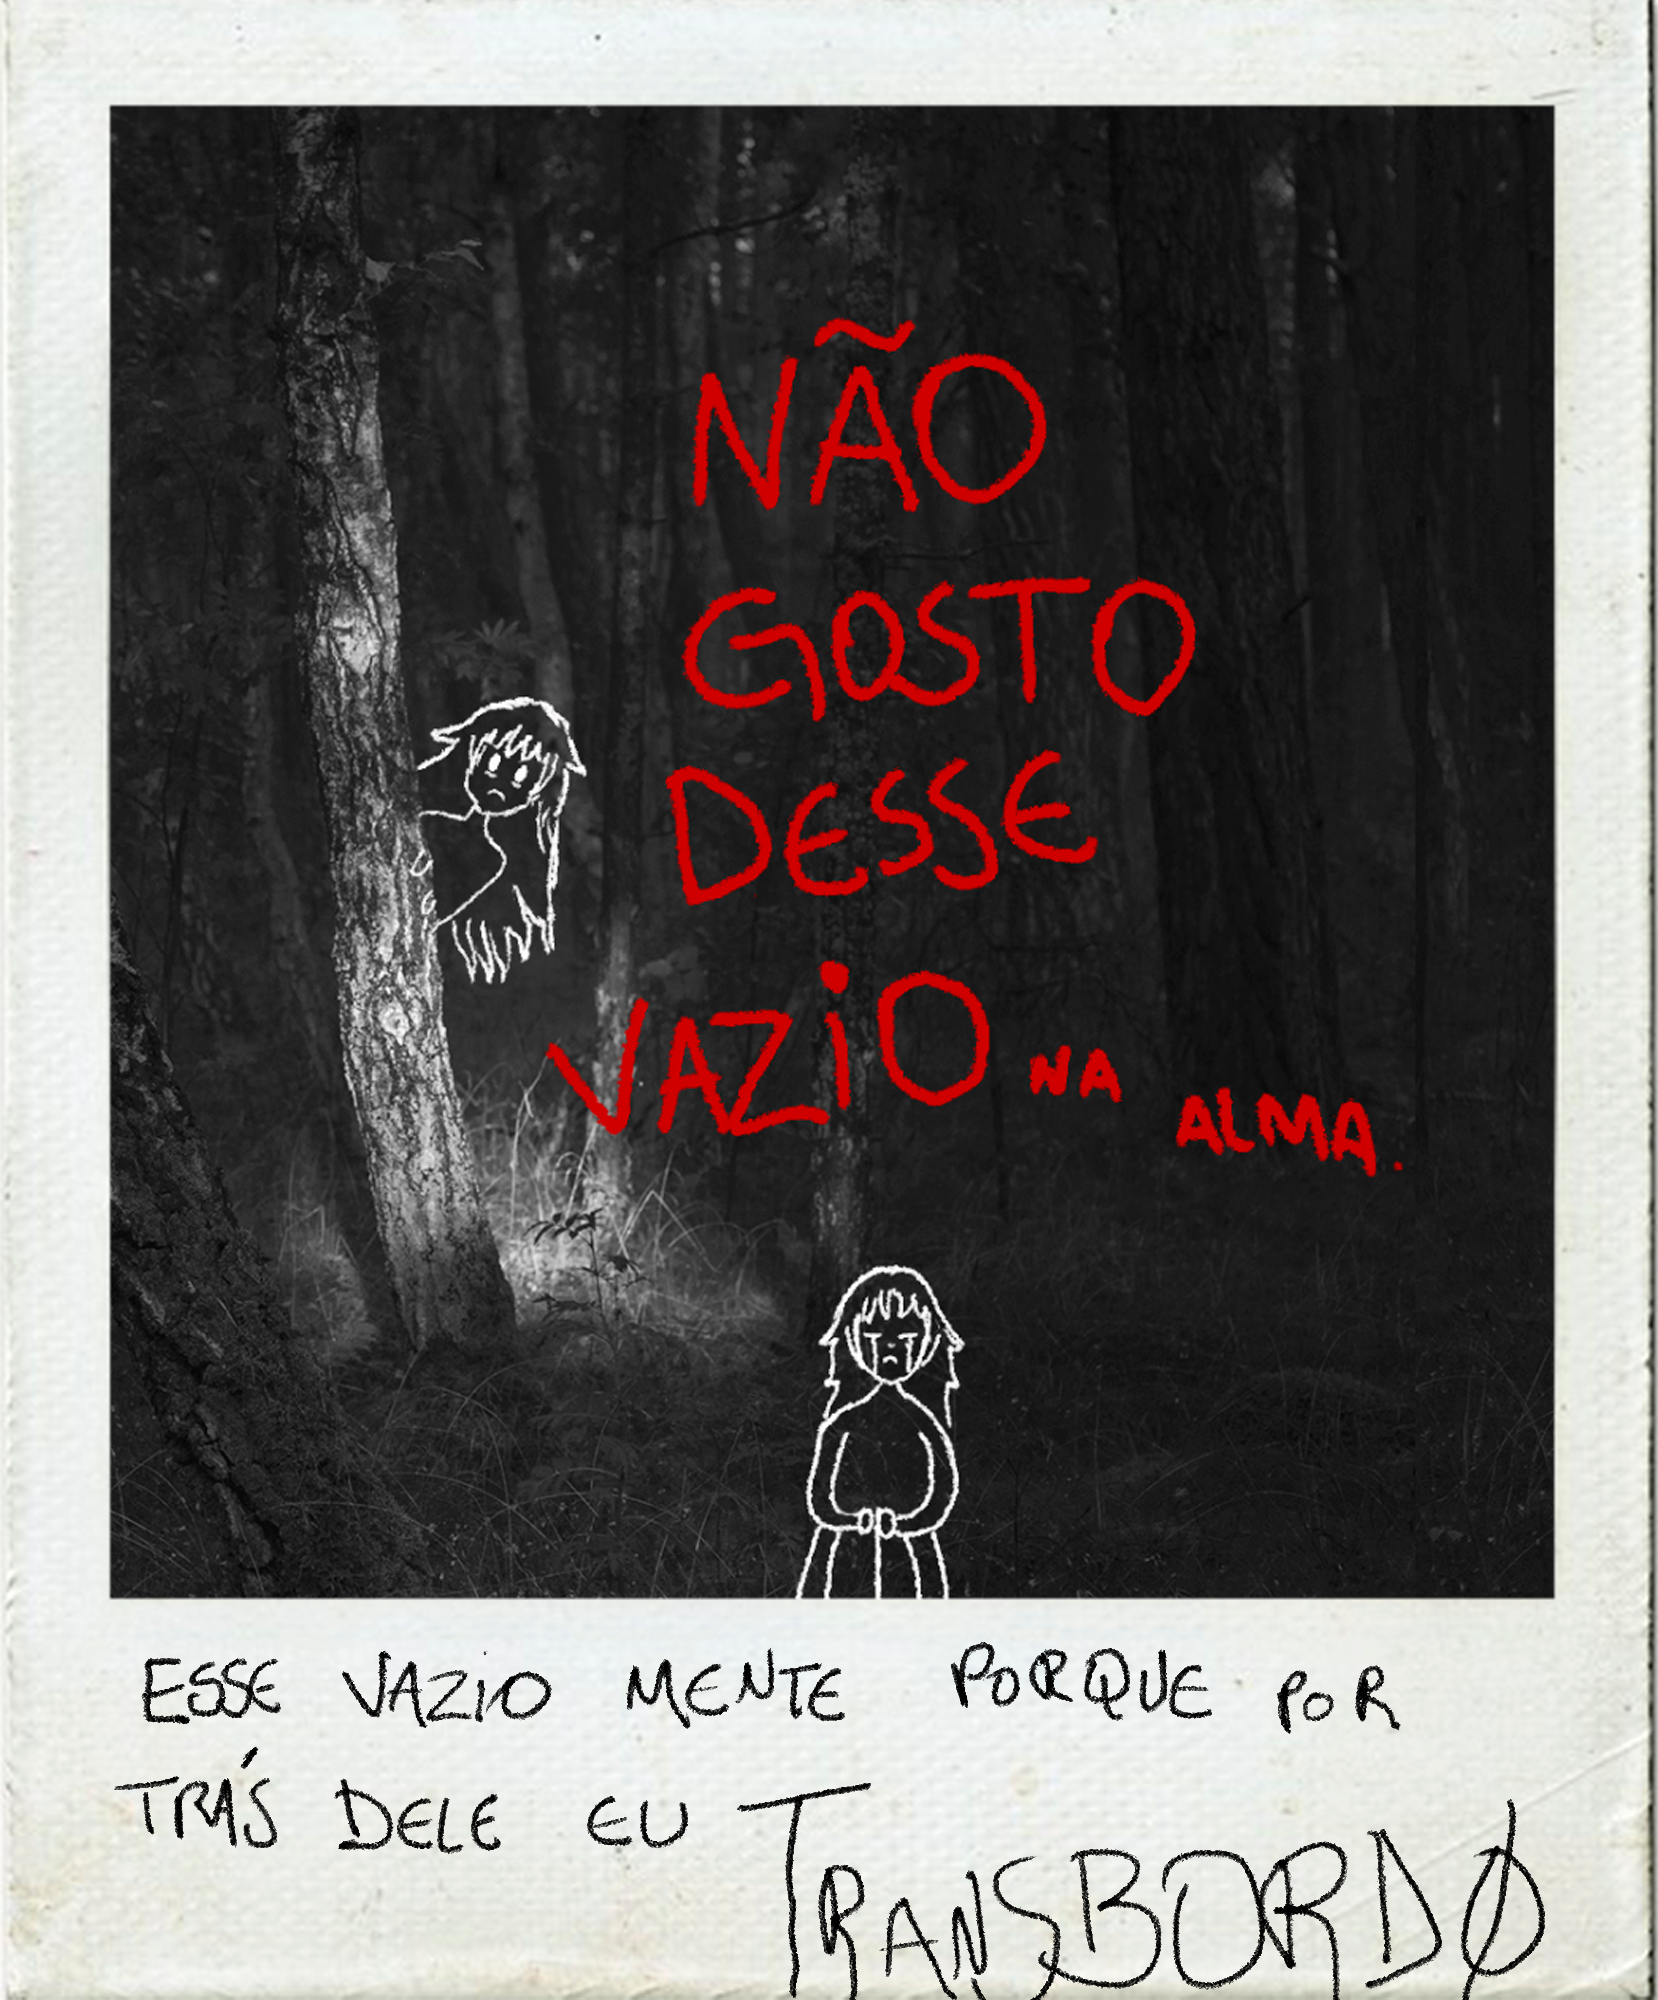 NÃO
GOSTO
DESSE
VAZiO NA ALMA.
ESSE VAZIO MENTE PORQUE POR
TRÁS DELE EU TRANSBORDO